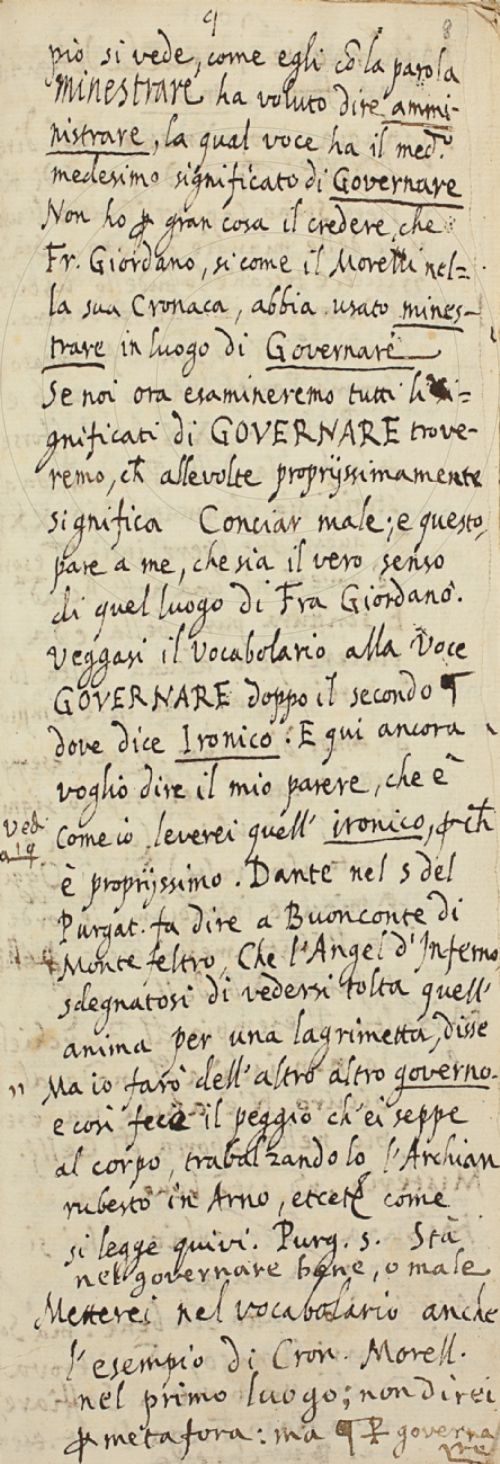 9
8
pio si vede, come egli cõ la parola
minestrare ha voluto dire ammi-
nistrare, la qual voce ha il med.º
medesimo significato di Governare
Non ho ꝑ gran cosa il credere, che
Fr. Giordano, si come il Morelli nel=
la sua Cronaca, abbia usato mines-
trare in luogo di Governare
Se noi ora esamineremo tutti li si=
gnificati di GOVERNARE trove-
remo, ch̃ allevolte proprijssimamente
significa Conciar male; e questo,
pare a me, che sia il vero senso
di quel luogo di Fra Giordano.
Veggasi il Vocabolario alla Voce
GOVERNARE doppo il secondo ¶
dove dice Ironico. E qui ancora
voglio dire il mio parere, che è
Come io leverei quell' ironico, ꝑ ch̃
è proprijssimo. Dante nel 5 del
Purgat. fa dire a Buonconte di
Montefeltro, Che l'Angel d'Inferno,
sdegnatosi di vedersi tolta quell'
anima per una lagrimetta, disse
" Ma io farò dell'altro altro governo.
e così fece il peggio ch'ei seppe
al corpo, trabalzandolo l'Archian
rubesto in Arno, etcetª come
si legge quivi. Purg. 5. Stà
nel governare bene, o male
Metterei nel vocabolario anche
l'esempio di Cron. Morell.
nel primo luogo; non direi
ꝑ metafora: ma ¶ ꝑ governa
re
Ved.